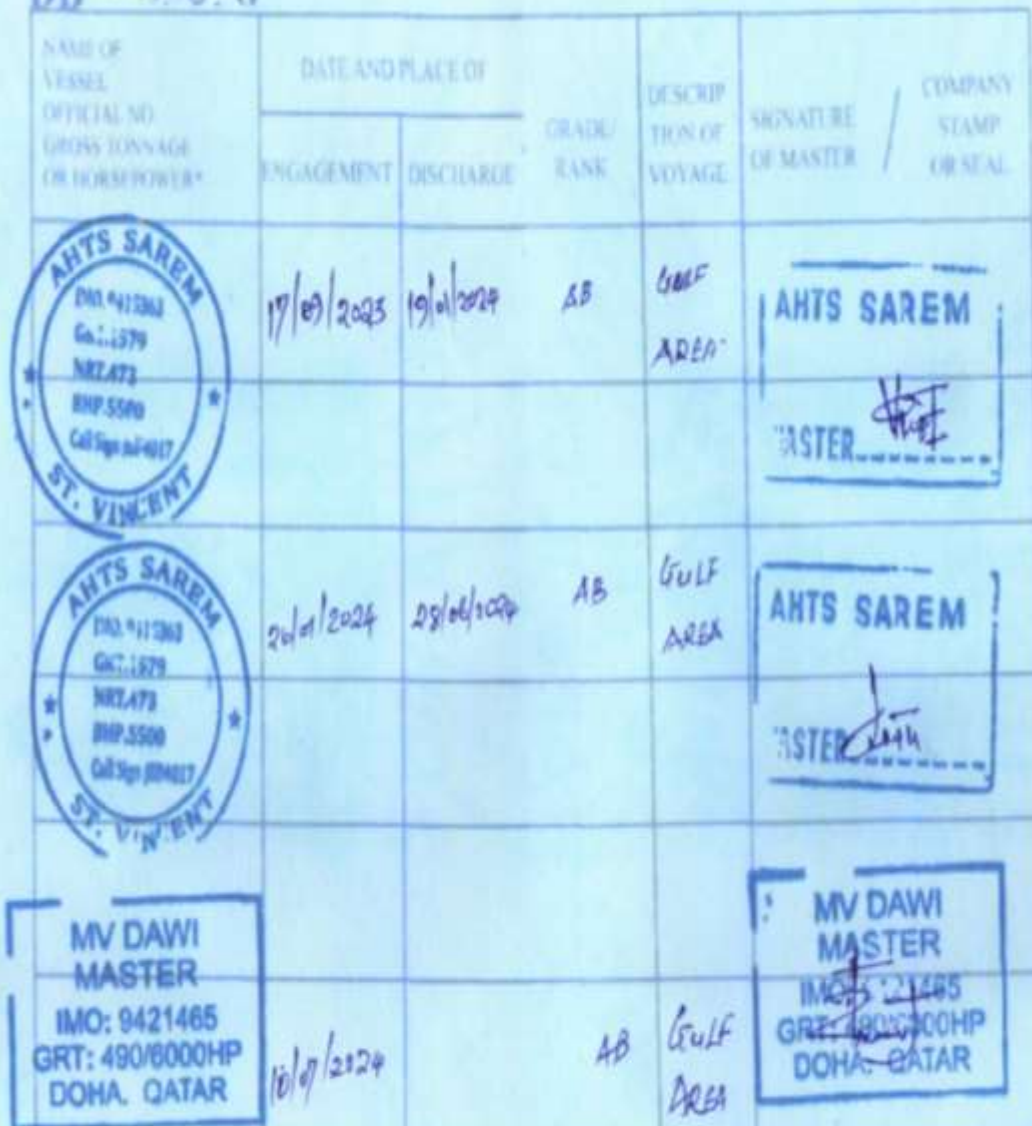 NAME OF
VESSEL
OFFICIAL NO
GROSS TONNAGE
OR HORSEPOWER*
DATE AND PLACE OF
ENGAGEMENT
DISCHARGE
GRADE/
RANK
DESCRIP
TION OF
VOYAGE
SIGNATURE
OF MASTER
/
COMPANY
STAMP
OR SEAL
AHTS SAREM
NRT.473
BHP.5500
Call Sign
ST. VINCENT
17/09/2023
19/01/2024
AB
GULF
AREA
AHTS SAREM
ASTER
AHTS SAREM
GRT.1579
NRT.473
BHP.5500
Call Sign
ST. VINCENT
20/01/2024
28/06/2024
AB
GULF
AREA
AHTS SAREM
STER
MV DAWI
MASTER
IMO: 9421465
GRT: 490/6000HP
DOHA. QATAR
10/07/2024
AB
GULF
AREA
MV DAWI
MASTER
DOHA. QATAR